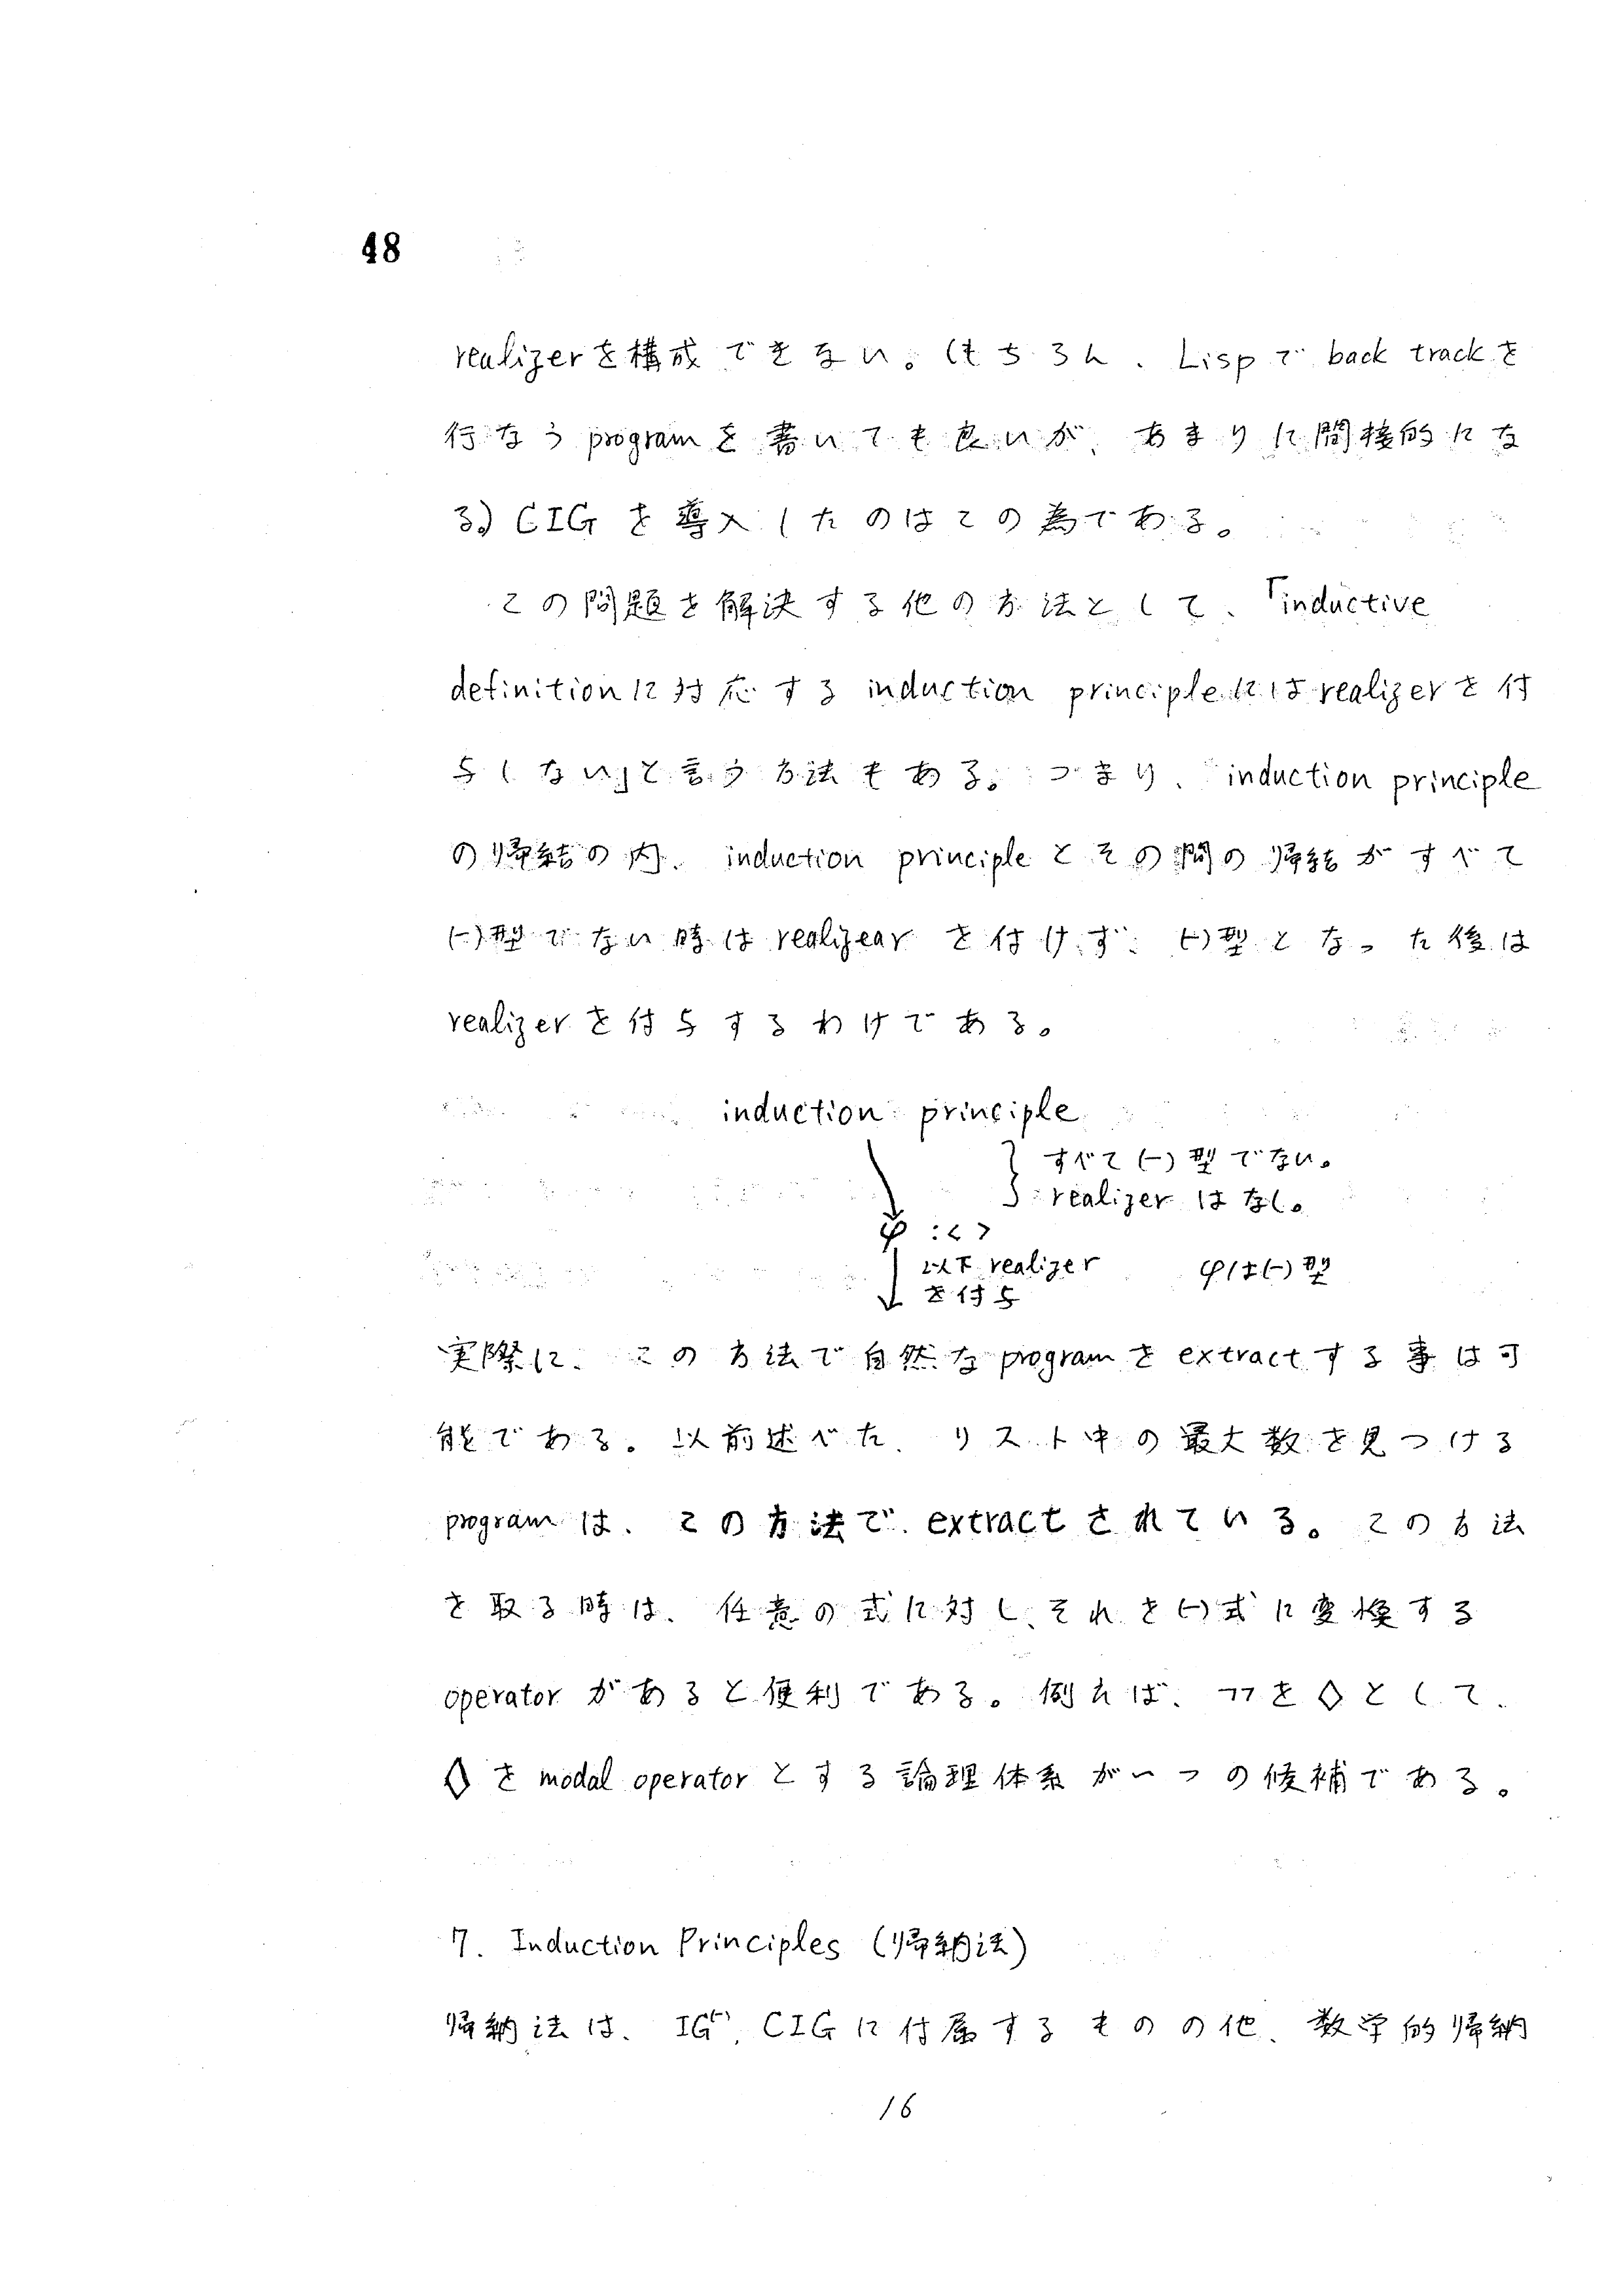 48
realizerを構成できない。(もちろん、Lispで back trackを
行なう programを書いても良いが、あまりに間接的にな
る。) CIGを導入したのはこの為である。
この問題を解決する他の方法として、「inductive
definitionに対応する induction principleにはrealizerを付
与しない」と言う方法もある。つまり、induction principle
の帰結の内、induction principleとその間の帰結がすべて
(-)型でない時はrealizearを付けず、(-)型となった後は
realizerを付与するわけである。
induction principle
すべて(-)型でない。
realizerはなし。
φ : < >
以下 realizer φは(-)型
を付与
実際に、この方法で自然なprogramをextractする事は可
能である。以前述べた、リスト中の最大数を見つける
programは、この方法で extractされている。この方法
を取る時は、任意の式に対し、それを(-)式に変換する
operatorがあると便利である。例えば、¬¬を◇として、
◇をmodal operatorとする論理体系が一つの候補である。
7. Induction Principles (帰納法)
帰納法は、IG⁽⁻⁾, CIGに付属するものの他、数学的帰納
16